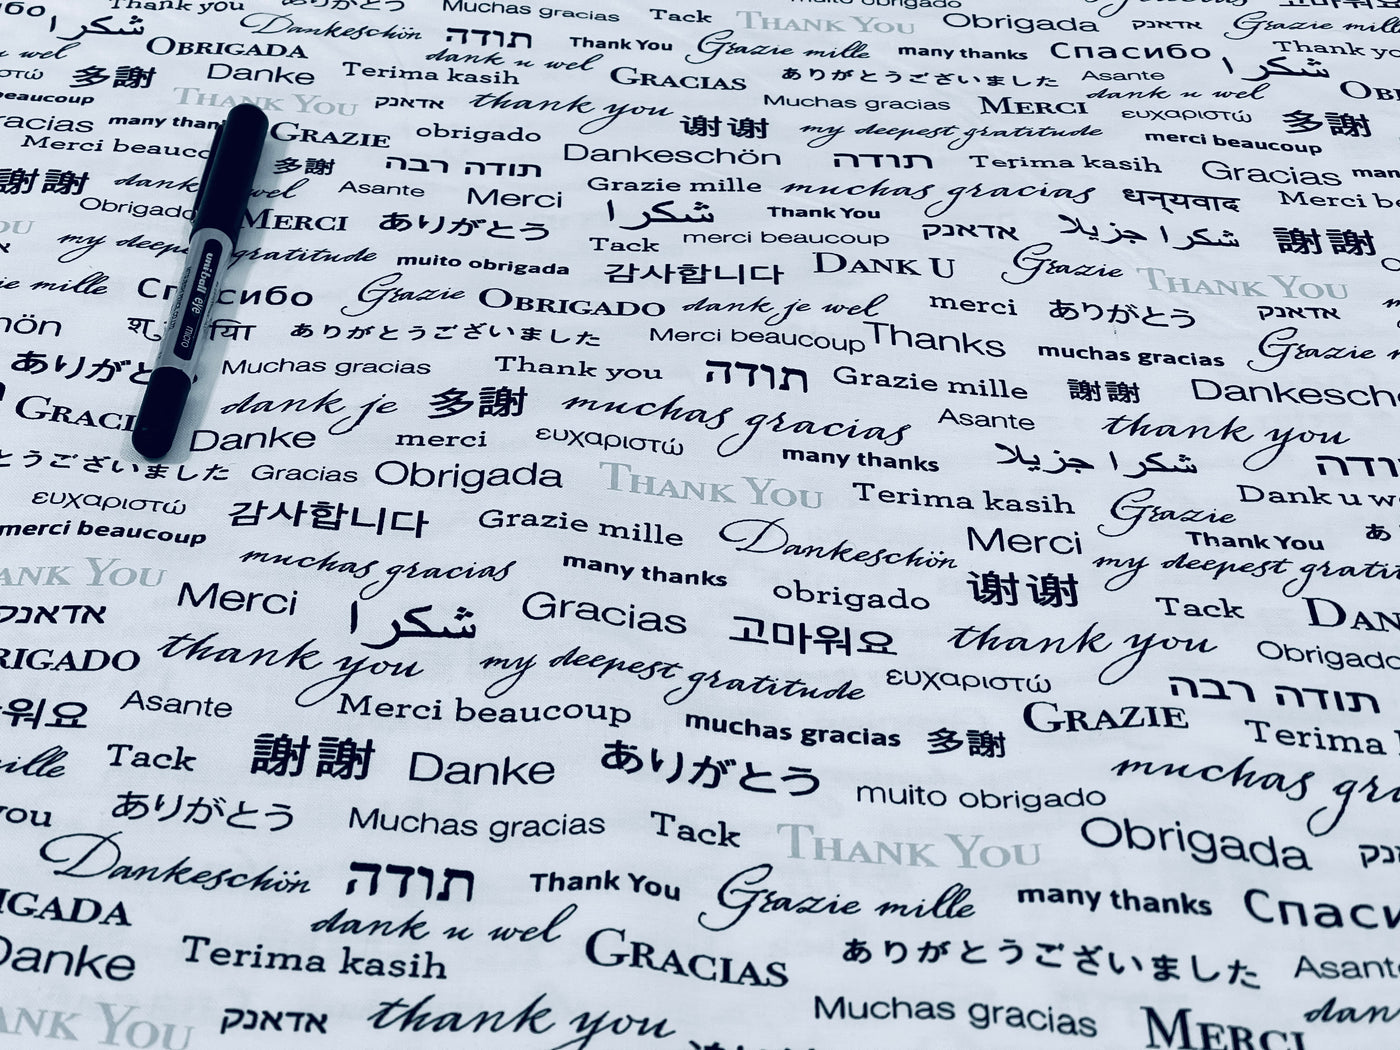 Thank you ありがとう Muchas gracias Tack THANK YOU muito obrigado Obrigada אדאנק Grazie mille
شكرا Dankeschön תודה Thank You Grazie mille many thanks Спасибо شكرا Thank you
OBRIGADA dank u wel GRACIAS ありがとうございました Asante dank u wel
多謝 Danke Terima kasih thank you Muchas gracias MERCI ευχαριστώ 多謝
beaucoup THANK YOU אדאנק 谢谢 my deepest gratitude merci beaucoup
many GRAZIE obrigado Dankeschön תודה Terima kasih Gracias
Merci 多謝 תודה רבה Grazie mille muchas gracias धन्यवाद
謝謝 dank wel Asante Merci شكرا Thank You אדאנק شكرا جزيلا 謝謝
Obrigado MERCI ありがとう Tack merci beaucoup
my gratitude muito obrigado 감사합니다 DANK U Grazie THANK YOU
mille Спасибо Grazie OBRIGADO dank je wel merci ありがとう אדאנק
ありがとうございました Merci beaucoup Thanks muchas gracias Grazie
Muchas gracias Thank you תודה Grazie mille 謝謝
dank je 多謝 muchas gracias Asante thank you
Danke merci ευχαριστώ many thanks شكرا جزيلا
Gracias Obrigada THANK YOU Terima kasih Grazie Dank u
ευχαριστώ 감사합니다 Grazie mille Dankeschön Merci Thank You
merci beaucoup muchas gracias many thanks obrigado 谢谢 my deepest
YOU Merci شكرا Gracias 고마워요 thank you Tack
אדאנק thank you my deepest gratitude ευχαριστώ תודה רבה
Asante Merci beaucoup muchas gracias 多謝 GRAZIE Terima
Tack 謝謝 Danke ありがとう muito obrigado muchas
ありがとう Muchas gracias Tack THANK YOU Obrigada
Dankeschön תודה Thank You Grazie mille many thanks
dank u wel GRACIAS ありがとうございました
Danke Terima kasih Muchas gracias MERCI
YOU אדאנק thank you